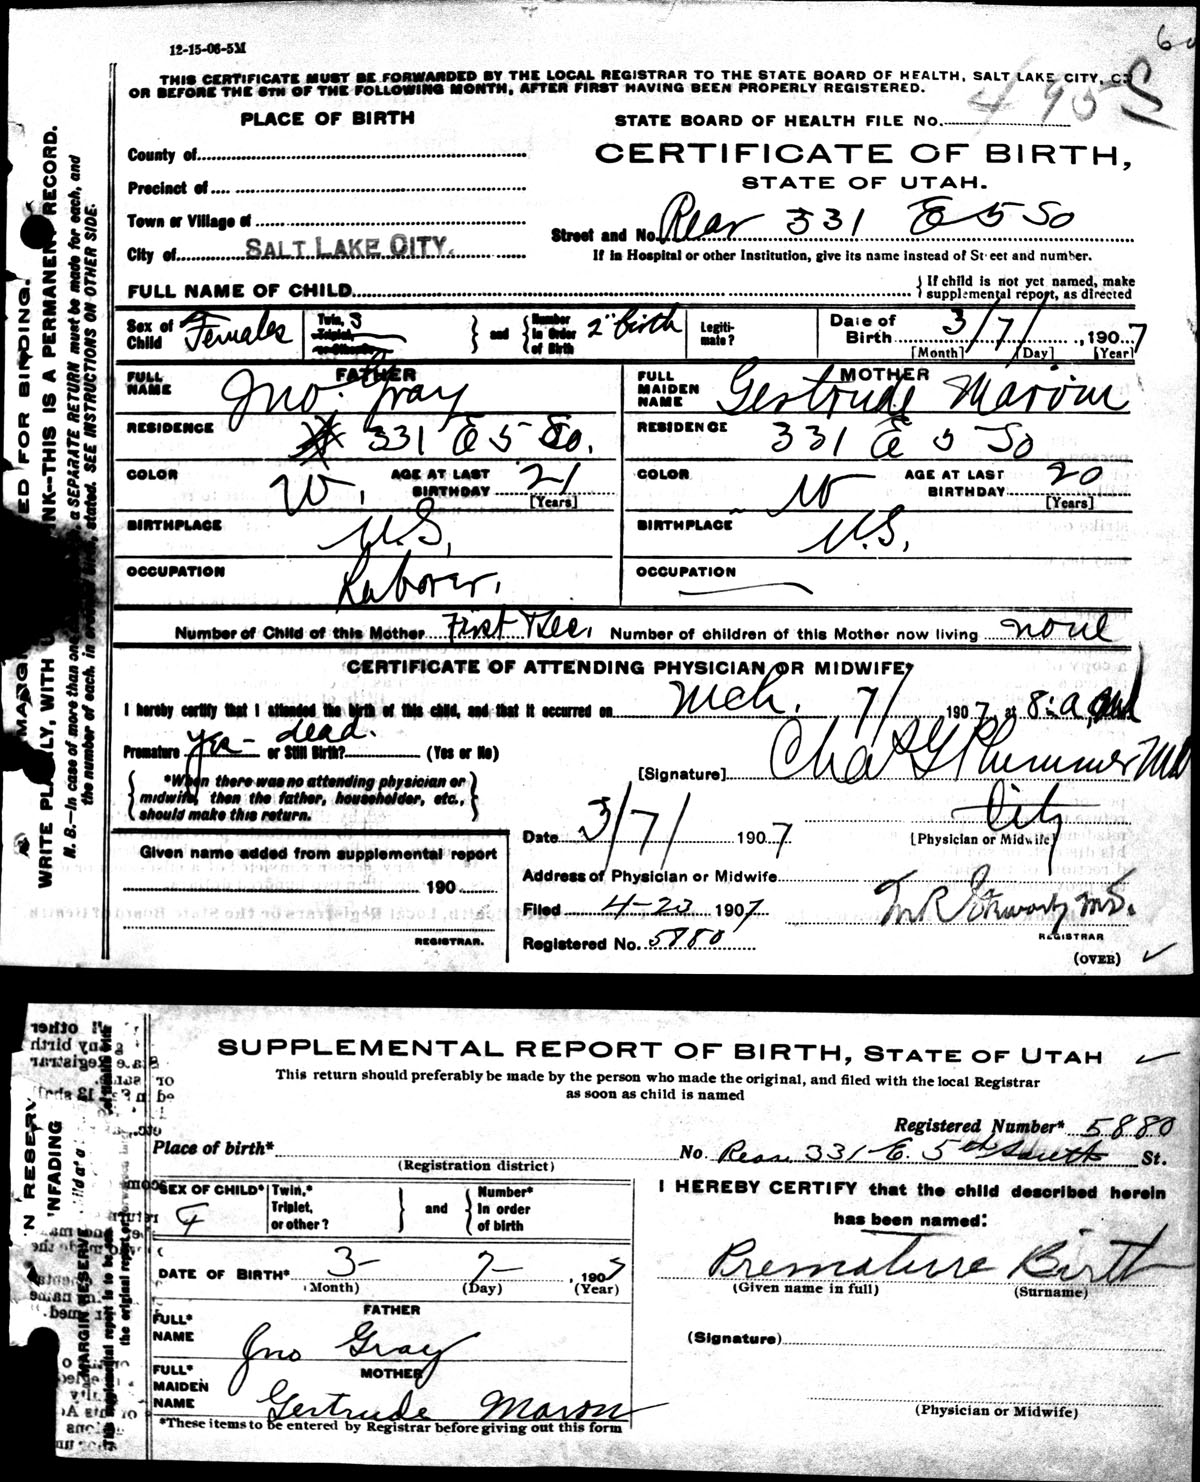 12-15-06-5M
THIS CERTIFICATE MUST BE FORWARDED BY THE LOCAL REGISTRAR TO THE STATE BOARD OF HEALTH, SALT LAKE CITY, ON
OR BEFORE THE 5TH OF THE FOLLOWING MONTH, AFTER FIRST HAVING BEEN PROPERLY REGISTERED.
PLACE OF BIRTH
STATE BOARD OF HEALTH FILE NO. 495 S
CERTIFICATE OF BIRTH,
STATE OF UTAH.
County of
Precinct of
Town or Village of
City of SALT LAKE CITY.
Street and No. Rear 331 E 5 So
If in Hospital or other Institution, give its name instead of Street and number.
FULL NAME OF CHILD
If child is not yet named, make
supplemental report, as directed
Sex of Child Females
Twin, 3
Triplet,
or Other?
and
Number
in Order
of Birth 2" birth
Legiti-
mate?
Date of
Birth 3/7/, 1907
[Month] [Day] [Year]
FULL NAME FATHER Jno. Gray
FULL MAIDEN NAME MOTHER Gertrude Maroni
RESIDENCE 331 E 5 So.
RESIDENCE 331 E 5 So
COLOR W. AGE AT LAST BIRTHDAY 21 [Years]
COLOR W AGE AT LAST BIRTHDAY 20 [Years]
BIRTHPLACE U.S.
BIRTHPLACE U.S.
OCCUPATION Laborer.
OCCUPATION
Number of Child of this Mother First Number of children of this Mother now living none
CERTIFICATE OF ATTENDING PHYSICIAN OR MIDWIFE*
I hereby certify that I attended the birth of this child, and that it occurred on Mch. 7/ 1907 at 8: a
Premature yes - or Still Birth? dead. (Yes or No)
*When there was no attending physician or
midwife, then the father, householder, etc.,
should make this return.
[Signature] Chas G Plummer MD
City
[Physician or Midwife]
Date 3/7/ 1907
Given name added from supplemental report
190
REGISTRAR.
Address of Physician or Midwife
Filed 4-23 1907
Registered No. 5880
REGISTRAR
(OVER)
WRITE PLAINLY, WITH
INK--THIS IS A PERMANENT RECORD.
ED FOR BINDING.
N. B.--In case of more than one
a SEPARATE RETURN must be made for each, and
the number of each, in
stated. SEE INSTRUCTIONS ON OTHER SIDE.
SUPPLEMENTAL REPORT OF BIRTH, STATE OF UTAH
This return should preferably be made by the person who made the original, and filed with the local Registrar
as soon as child is named
Registered Number* 5880
Place of birth* No. Rear 331 E. 5th South St.
(Registration district)
SEX OF CHILD* F
Twin,*
Triplet,
or other?
and
Number*
in order
of birth
I HEREBY CERTIFY that the child described herein
has been named:
DATE OF BIRTH* 3- 7-, 1907
(Month) (Day) (Year)
Premature Birth
(Given name in full) (Surname)
FULL* NAME FATHER Jno Gray
(Signature)
FULL* MAIDEN NAME MOTHER Gertrude Maron
(Physician or Midwife)
*These items to be entered by Registrar before giving out this form